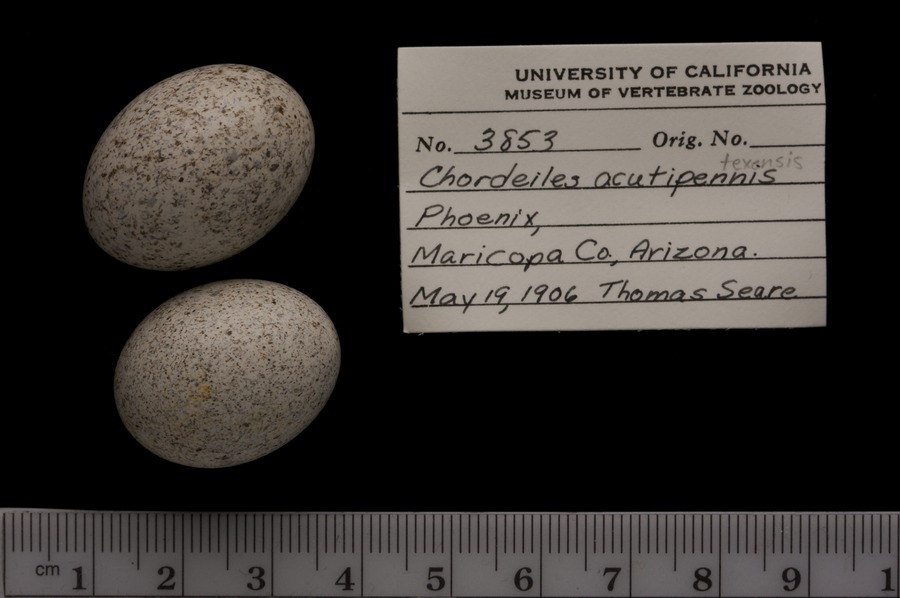 UNIVERSITY OF CALIFORNIA
MUSEUM OF VERTEBRATE ZOOLOGY
No. 3853 Orig. No.
texensis
Chordeiles acutipennis
Phoenix,
Maricopa Co., Arizona.
May 19, 1906 Thomas Seare.
cm 1 2 3 4 5 6 7 8 9 1